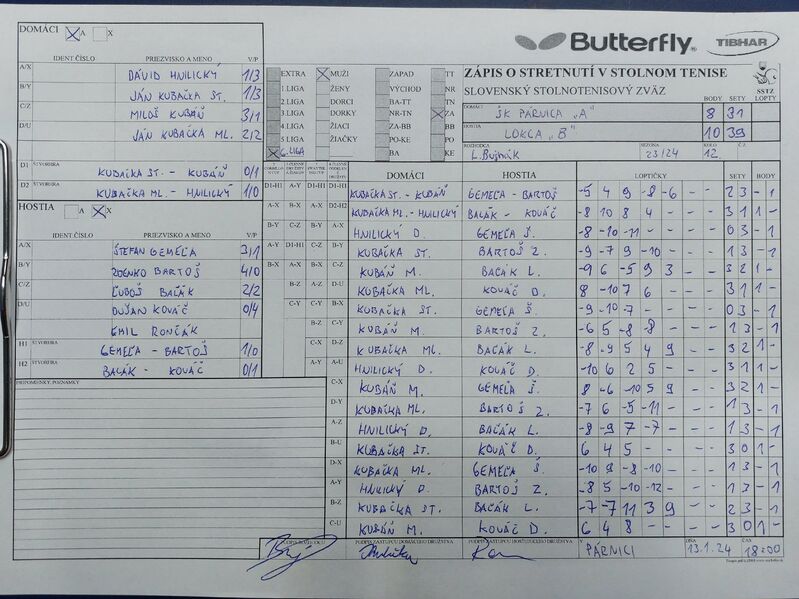 DOMÁCI A X
Butterfly TIBHAR
IDENT ČÍSLO PRIEZVISKO A MENO V/P
A/X DÁVID HNILICKÝ 1/3
B/Y JÁN KUBAČKA ST. 1/3
C/Z MILOŠ KUBÁŇ 3/1
D/U JÁN KUBAČKA ML. 2/2
D1 ŠTVORHRA KUBAČKA ST. - KUBÁŇ 0/1
D2 ŠTVORHRA KUBAČKA ML. - HNILICKÝ 1/0
EXTRA MUŽI ZÁPAD TT
1 LIGA ŽENY VÝCHOD NR
2 LIGA DORCI BA-TT TN
3 LIGA DORKY NR-TN ZA
4 LIGA ŽIACI ZA-BB BB
5 LIGA ŽIAČKY PO-KE PO
6. LIGA BA KE
ZÁPIS O STRETNUTÍ V STOLNOM TENISE
SLOVENSKÝ STOLNOTENISOVÝ ZVÄZ
SSTZ
BODY SETY LOPTY
DOMÁCI ŠK PÁRNICA "A" 8 31
HOSTIA LOKCA "B" 10 39
ROZHODCA L. Bujňák SEZÓNA 23/24 KOLO 12. Č.Z.
HOSTIA A X
IDENT ČÍSLO PRIEZVISKO A MENO V/P
A/X ŠTEFAN GEMEĽA 3/1
B/Y ZDENKO BARTOŠ 4/0
C/Z ĽUBOŠ BAČÁK 2/2
D/U DUŠAN KOVÁČ 0/4
EMIL RONČÁK
H1 ŠTVORHRA GEMEĽA - BARTOŠ 1/0
H2 ŠTVORHRA BAČÁK - KOVÁČ 0/1
PRIPOMIENKY, POZNÁMKY
DOMÁCI HOSTIA LOPTIČKY SETY BODY
D1-H1 A-Y D1-H1 D1-H1 KUBAČKA ST. - KUBÁŇ GEMEĽA - BARTOŠ -5 4 9 -8 -6 - - 2 3 - 1
A-X B-X A-X D2-H2 KUBAČKA ML. - HNILICKÝ BAČÁK - KOVÁČ -8 10 8 4 - - - 3 1 1 -
B-Y C-Z B-Y A-X HNILICKÝ D. GEMEĽA Š. -8 -10 -11 - - - - 0 3 - 1
A-Y D1-H1 C-Z B-Y KUBAČKA ST. BARTOŠ Z. -9 -7 9 -10 - - - 1 3 - 1
B-X A-X B-X C-Z KUBÁŇ M. BAČÁK L. -9 6 -5 9 3 - - 3 2 1 -
B-Y A-Z D-U KUBAČKA ML. KOVÁČ D. 8 -10 7 6 - - - 3 1 1 -
C-Y C-Y B-X KUBAČKA ST. GEMEĽA Š. -9 -10 -7 - - - - 0 3 - 1
B-Z C-Y KUBÁŇ M. BARTOŠ Z. -6 5 -8 -8 - - - 1 3 - 1
C-X D-Z KUBAČKA ML. BAČÁK L. -8 -9 5 4 9 - - 3 2 1 -
A-Y A-U HNILICKÝ D. KOVÁČ D. -10 6 2 5 - - - 3 1 1 -
C-X KUBÁŇ M. GEMEĽA Š. 8 -6 -10 5 9 - - 3 2 1 -
D-Y KUBAČKA ML. BARTOŠ Z. -7 6 -5 -11 - - - 1 3 - 1
A-Z HNILICKÝ D. BAČÁK L. -8 -9 7 -7 - - - 1 3 - 1
B-U KUBAČKA ST. KOVÁČ D. 6 4 5 - - - - 3 0 1 -
D-X KUBAČKA ML. GEMEĽA Š. -10 9 -8 -10 - - - 1 3 - 1
A-Y HNILICKÝ D. BARTOŠ Z. -8 5 -10 -12 - - - 1 3 - 1
B-Z KUBAČKA ST. BAČÁK L. -7 -7 11 3 9 - - 2 3 - 1
C-U KUBÁŇ M. KOVÁČ D. 6 4 8 - - - - 3 0 1 -
PODPIS ROZHODCU PODPIS ZÁSTUPCU DOMÁCEHO DRUŽSTVA PODPIS ZÁSTUPCU HOSŤUJÚCEHO DRUŽSTVA V PÁRNICI DŇA 13.1.24 ČAS 18:00